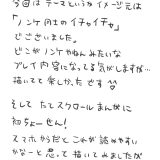 今回は テーマというかイメージ元は
「ノンケ同士のイチャイチャ」
でございました。
どこがノンケやねんみたいな
プレイ内容になってる気がしますが…
描いてて楽しかったです
そして たてスクロールまんがに
初ちょーせん!
スマホからだとこれが読みやすい
かなーと思って描いてみましたが